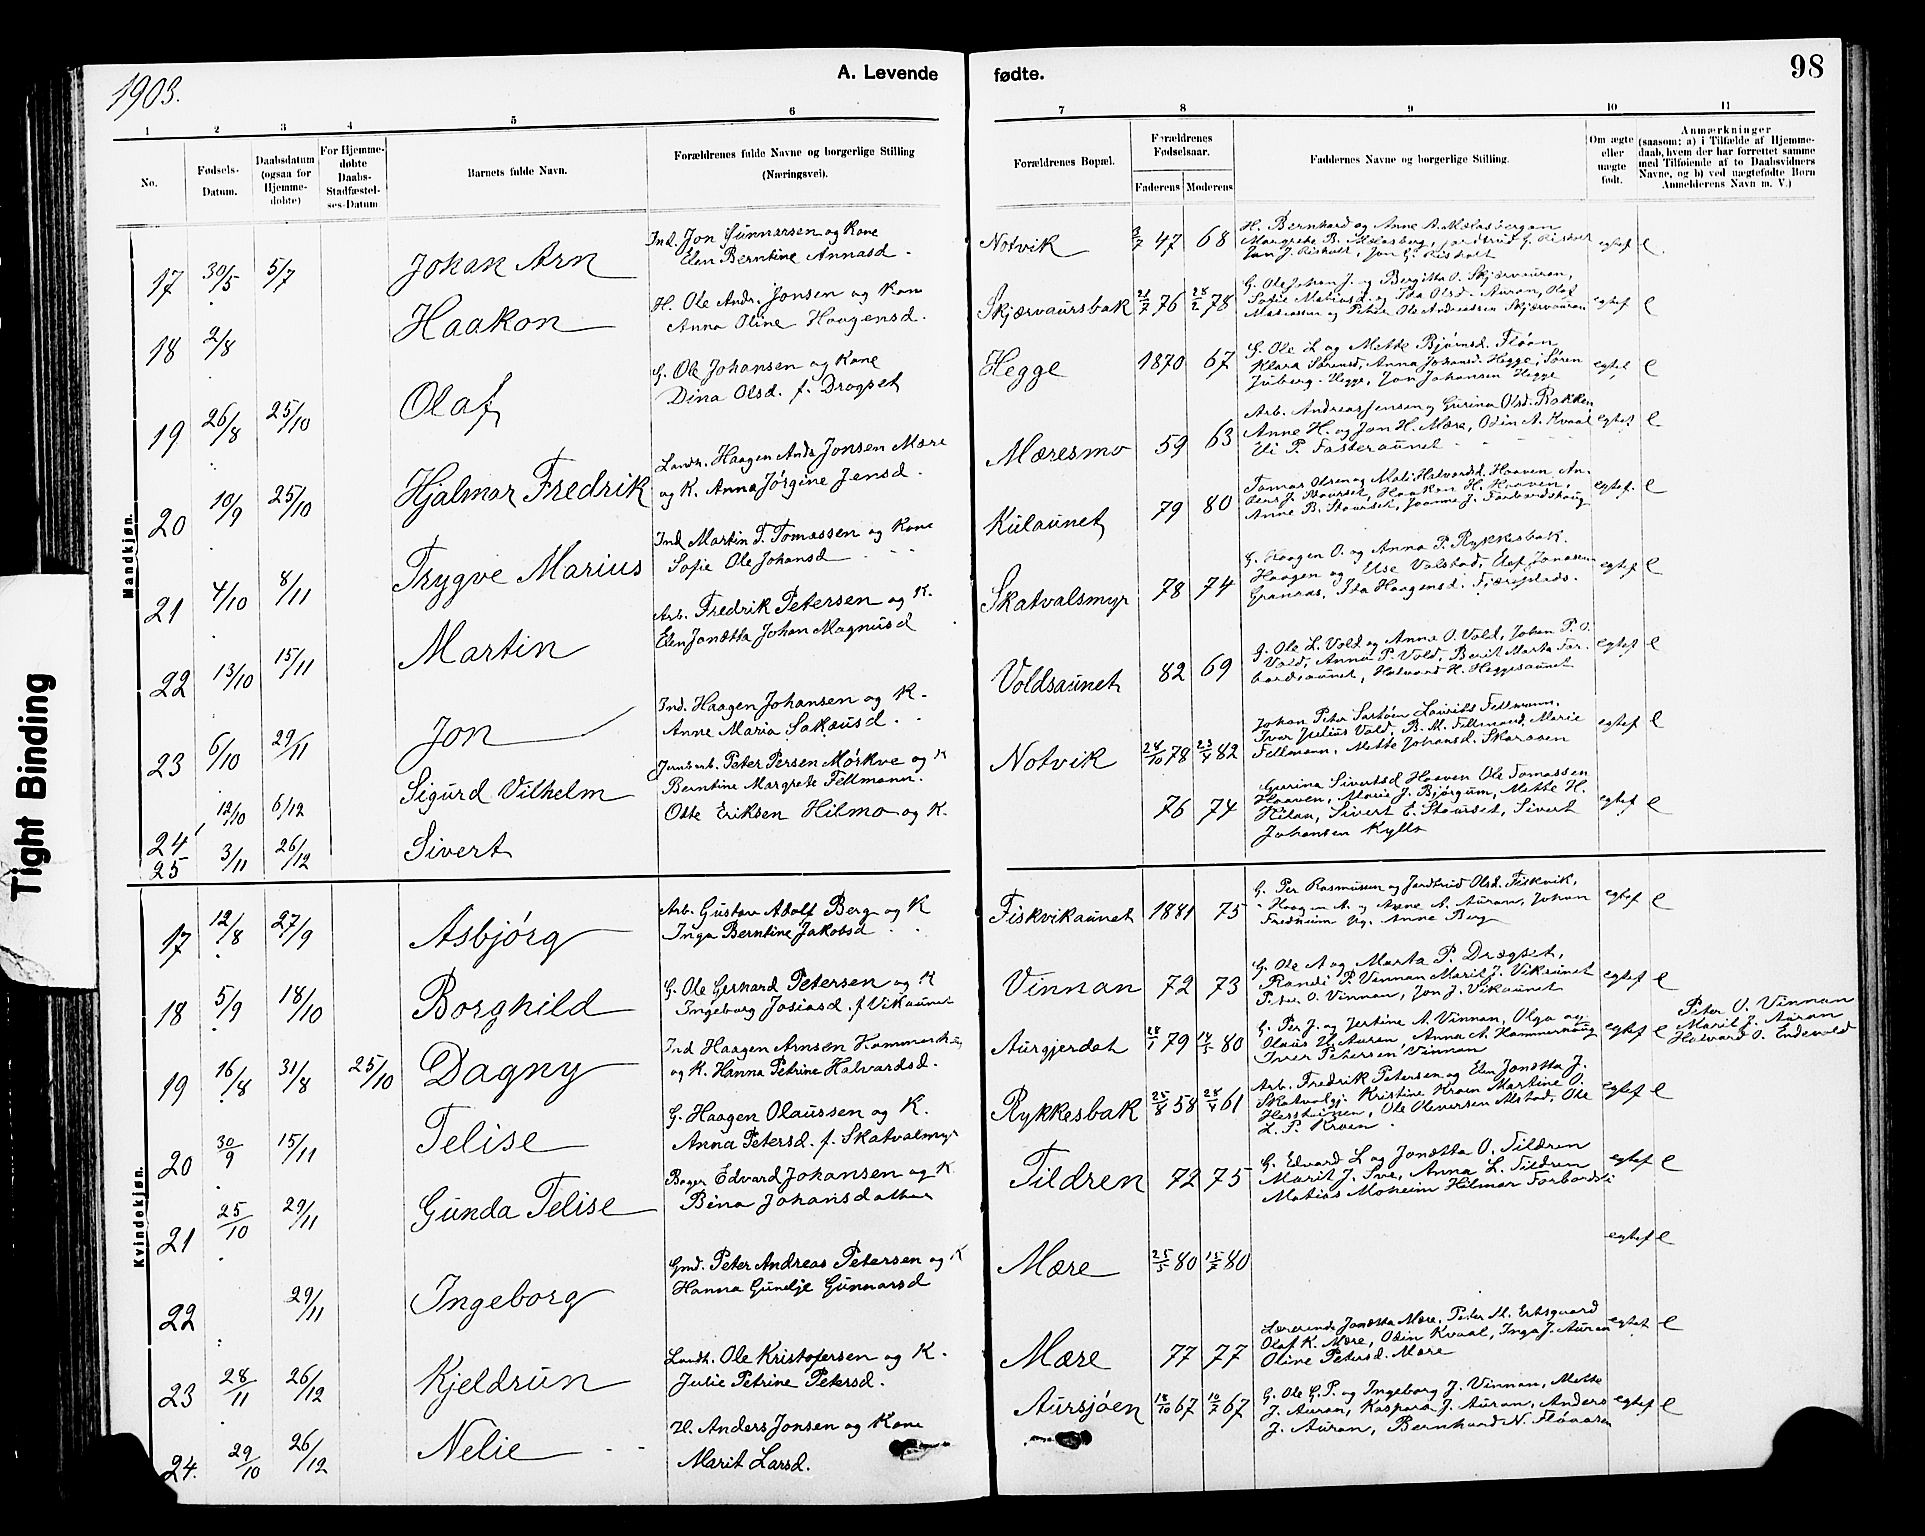 1903.
A. Levende
fødte.
98
1 2 3 4 5 6 7 8 9 10 11
No.
Fødsels-
Datum.
Daabsdatum
(ogsaa for
Hjemme-
døbte)
For Hjemme-
døbte
Daabs-
Stadfæstel-
ses-Datum
Barnets fulde Navn.
Forældrenes fulde Navne og borgerlige Stilling
(Næringsvei).
Forældrenes Bopæl.
Forældrenes
Fødselsaar.
Faderens Moderens
Faddernes Navne og borgerlige Stilling.
Om ægte
eller
uægte
født.
Anmærkninger
(saasom: a) i Tilfælde af Hjemme-
daab, hvem der har forrettet samme
med Tilføiende af to Daabsvidners
Navne, og b) ved uægtefødte Børn
Anmelderens Navn m. V.)
Tight Binding
Mandkjøn.
17 30/5 5/7 Johan Arn
Ind. Jon Gunnarsen og Kone
Elen Berntine Annasd.
Notvik 47 68
H. Bernhard og Anne A.
Margrete B.
Jon J. Risholt, Jon G. Risholt
egtef e
18 2/8 Haakon
H. Ole Andr. Jonsen og Kone
Anna Oline Haagensd.
Skjærvaursbak 21/7 76 28/2 78
G. Ole Johan J. og Bergitta O. Skjærvauran,
Sofie og Ida Olsd. Auran, Olaf
og Peter Ole Andreassen Skjærvauran
egtef e
19 26/8 25/10 Olaf
G. Ole Johansen og Kone
Dina Olsd. f. Drogset
Hegge 1870 67
G. Ole L. og Mette Bjørnsd. Fløan
Klara Sørensd, Anna Johansd. Hegge, Søren
Juberg - Hegge, Jon Johansen Hegge
egtef e
20 10/9 25/10 Hjalmar Fredrik
Landh. Haagen Andr Jonsen Mære
og K. Anna Jørgine Jensd.
Mæresmo 59 63
Arb. Andreas Jensen og Gurina Olsd. Bakken
Anne H. og Jon H. Mære, Odin A. Kvaal
P. Fasteraunet
egtef e
21 4/10 8/11 Trygve Marius
Ind Martin T. Tomassen og Kone
Sofie Ole Johansd
Kulaunet 79 80
Tomas Olsen og Mali Halvardsd. Haaven, An-
ders J. Stourset, Haakon H. Haaven,
Anne B. Stourset, J. Forbordshaug
egtef. e
22 13/10 15/11 Martin
Arb. Fredrik Petersen og K.
Elen Jonetta Johan Magnusd
Skatvalsmyr 78 74
G. Haagen O. og Anna P. Rykkesbak.
Haagen og Else Valstad, Jonassen
Granaas, Ida Haagensd.
egtef e
23 6/10 29/11 Jon
Ind. Haagen Johansen og K.
Anne Maria Sakæusd.
Voldsaunet 82 69
G. Ole L. Vold og Anna O. Vold, Johan P. O.
Vold, Anna P. Vold, Berit Marta For-
bordsaunet, Halvard H. Heggesaunet
egtef e
24 12/10 6/12 Sigurd Vilhelm
Jernbarb. Peter Persen Mørkve og K
Berntine Margrete Fellmann.
Notvik 28/10 78 23/4 82
Johan Peter Laurits Fellmann,
Ivar Julius Vold, B. M. Fellmand, Marie
Fellmann, Mette Johansd. Skaraaen
egtef e
25 3/11 26/12 Sivert
Otte Eriksen Hilmo og K.
76 74
Gurina Sivertsd Haaven Ole Tomassen
Haaven, Marie J. Bjørgum, Mette H.
Hilan, Sivert E. Stourset, Sivert
Johansen Kyllo
egtef e
Kvindekjøn.
17 12/8 27/9 Asbjørg
Arb. Gustav Adolf Berg og K
Inga Berntine Jakobsd
Fiskvikaunet 1881 75
G. Per Rasmussen og Jordtrud Olsd. Fiskvik,
Haagen A. og Anne A. Auran, Johan
Fredheim Pg. Anne Berg
egtef e
18 5/9 18/10 Borghild
G. Ole Gerhard Petersen og K
Ingeborg Josiasd. f. Vikaunet
Vinnan 72 73
G. Ole A og Marta P. Drogset,
Randi P. Vinnan Marit J. Vikaunet
Peter O. Vinnan, Jon J. Vikaunet
egtef e
19 16/8 31/8 25/10 Dagny
Ind Haagen Arnsen
og K. Hanna Petrine Halvardsd.
Aurgjerdet 28/1 79 14/5 80
G. Per J. og Jertine A. Vinnan, Olga og
Olaus H. Auran, Anna A Hammerhaug
Iver Petersen Vinnan
egtef e
Peter O. Vinnan
Marit J. Auran
Halvard O.
20 30/9 15/11 Telise
G. Haagen Olaussen og K.
Anna Petersd. f. Skatvalmyr
Rykkesbak 25/8 58 28/4 61
Arb. Fredrik Petersen og Elen Jonetta J.
Skatvalsj. Kristine Kroen Martine O.
Ole Oleversen Alstad, Ole
L. P. Kroen.
egtef e
21 25/10 29/11 Gunda Telise
Bager Edvard Johansen og K
Bina Johansdatter
Tildren 72 75
G. Edvard L og Jonetta O. Tildren
Marit J. Sve, Anna L. Tildren
Matias Moheim Hilmar
egtef e
22 29/11 Ingeborg
Gmd. Peter Andreas Petersen og K
Hanna Gundje Gunnarsd
Mære 25/5 80 15/7 80
egtef e
23 28/11 26/12 Kjeldrun
Landh. Ole Kristofersen og K.
Julie Petrine Petersd.
Mære 77 77
Lærerinde Jonetta Mære, Peter M. Ertsgaard
Olaf K. Mære, Odin Kvaal, Inga J. Auran
Oline Petersd. Mære
egtef e
24. 29/10 26/12 Nelie
H. Anders Jonsen og Kone
Marit Larsd.
Aursjøen 18/10 67 10/7 67
G. Ole G. P. og Ingeborg J. Vinnan, Mette
J. Auran, Kaspara J. Auran, Anders
J. Auran, Bernhard N.
egtef e